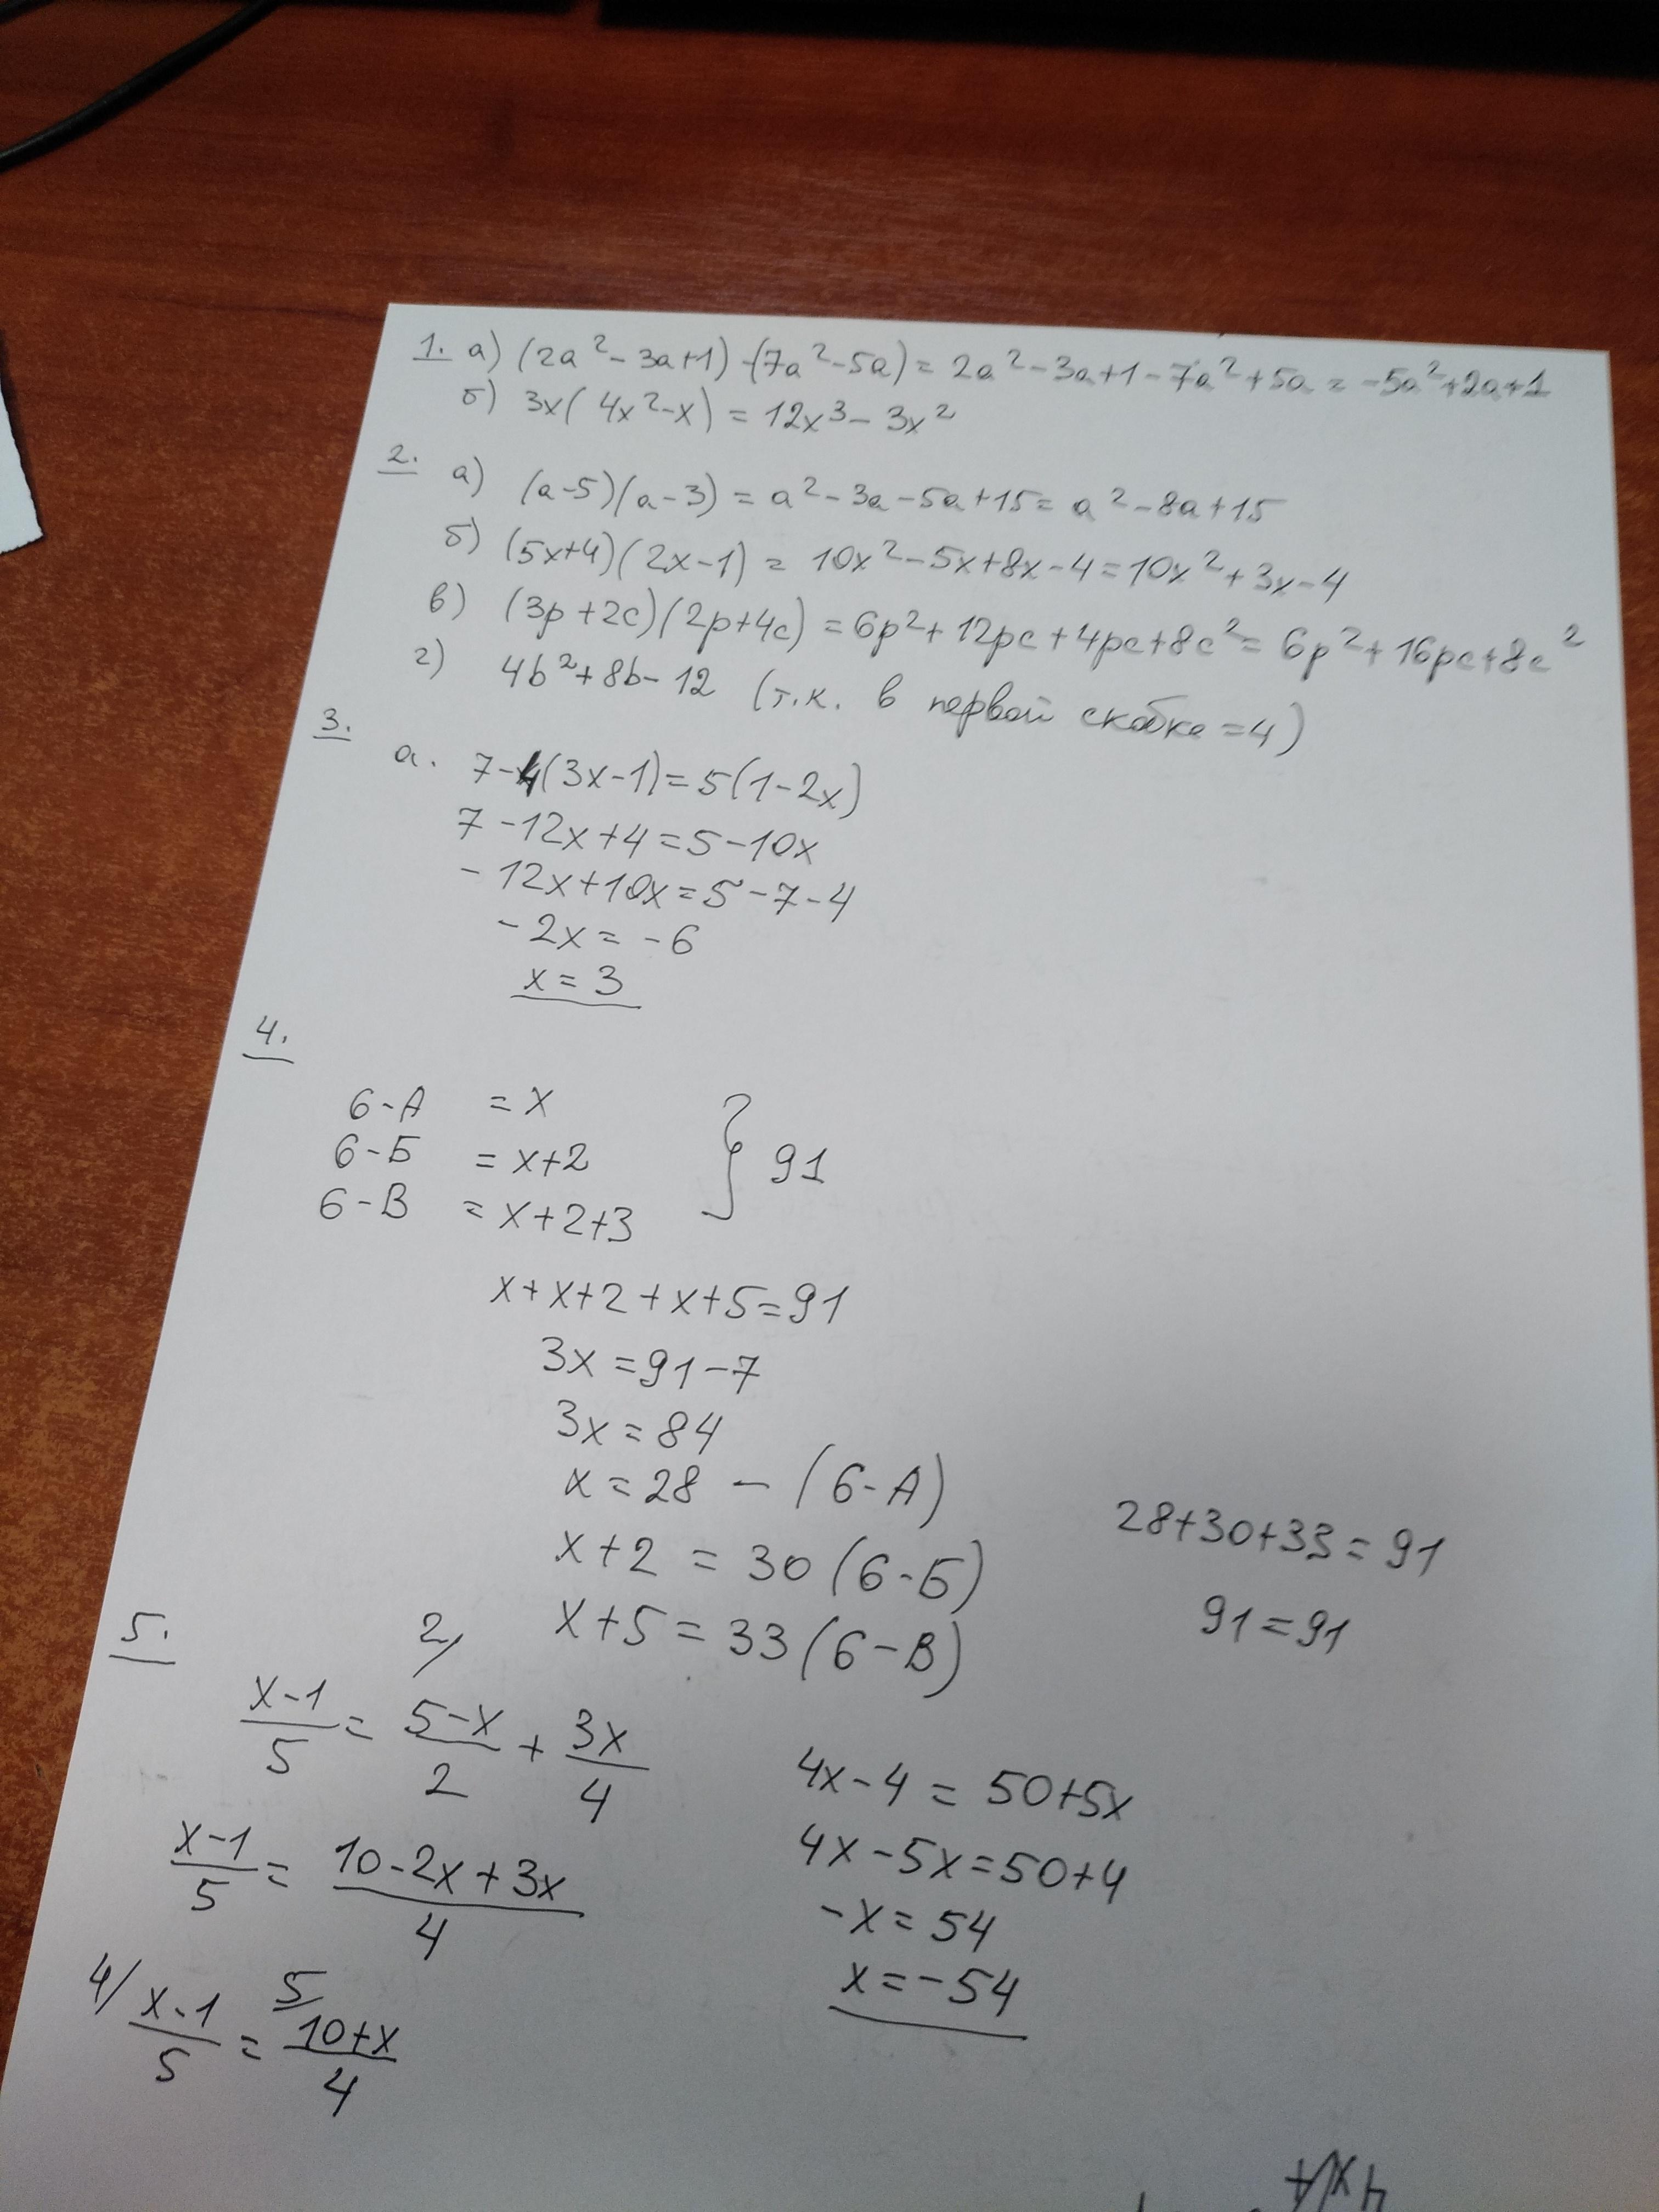 1. а) (2a² - 3a+1) - (7a² - 5a) = 2a² - 3a + 1 - 7a² + 5a = -5a² + 2a + 1
б) 3x( 4x² - x) = 12x³ - 3x²
2. а) (a-5)(a-3) = a² - 3a - 5a + 15 = a² - 8a + 15
б) (5x+4)(2x-1) = 10x² - 5x + 8x - 4 = 10x² + 3x - 4
в) (3p+2c)(2p+4c) = 6p² + 12pc + 4pc + 8c² = 6p² + 16pc + 8c²
г) 4b² + 8b - 12 (т.к. в первой скобке = 4)
3.
а. 7-4(3x-1) = 5(1-2x)
7 - 12x + 4 = 5 - 10x
- 12x + 10x = 5 - 7 - 4
- 2x = - 6
x = 3
4.
6-А = x
6-Б = x+2 } 91
6-В = x+2+3
x + x+2 + x+5 = 91
3x = 91 - 7
3x = 84
x = 28 - (6-А)
x+2 = 30 (6-Б)
x+5 = 33 (6-В)
28+30+33 = 91
91 = 91
5.
2/
x-1/5 = 5-x/2 + 3x/4
x-1/5 = 10-2x+3x/4
4/ x-1/5 = 5/ 10+x/4
4x - 4 = 50+5x
4x - 5x = 50+4
-x = 54
x = -54